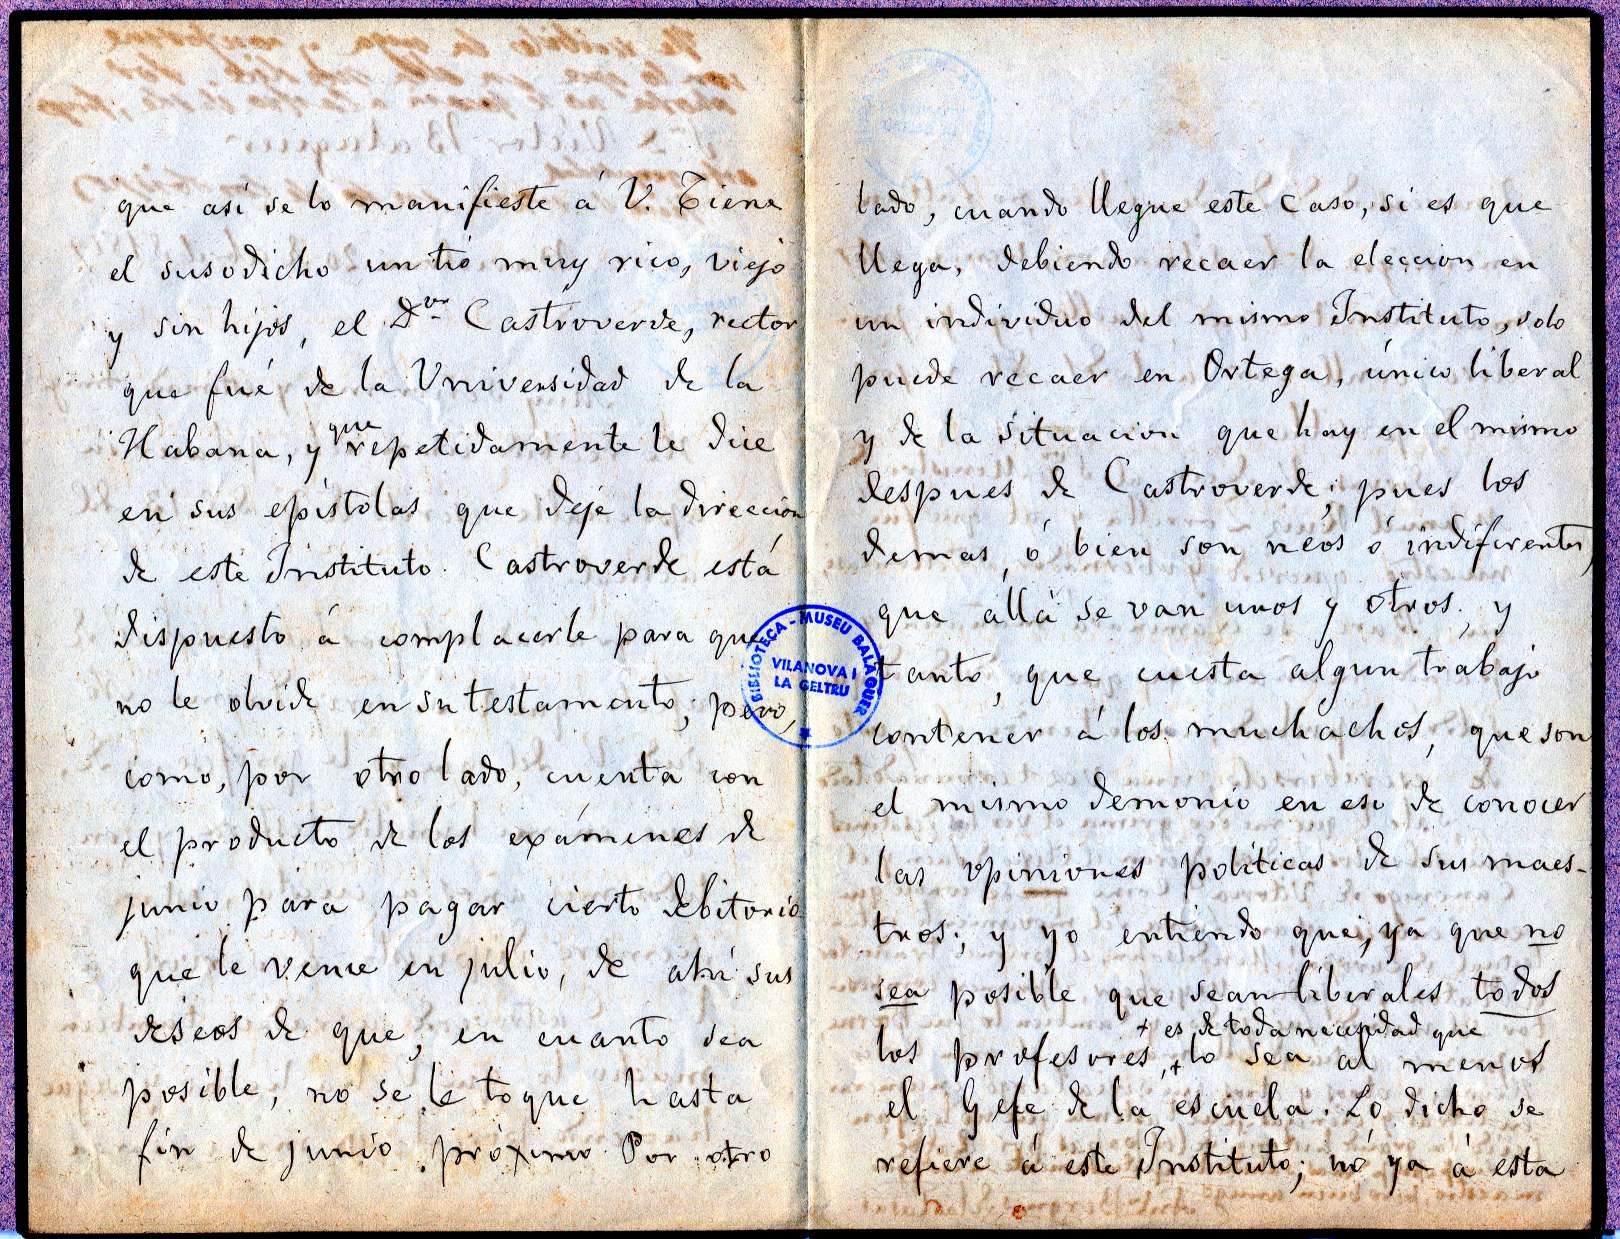 que así se lo manifieste á V. Tiene
el susodicho un tio muy rico, viejo
y sin hijos, el Dor Castroverde, rector
que fué de la Universidad de la
Habana, y que repetidamente le dice
en sus epístolas que deje la direccion
de este Instituto. Castroverde está
dispuesto á complacerle para que
no le olvide en su testamento; pero,
como, por otro lado, cuenta con
el producto de los exámenes de
junio para pagar cierto debitorio
que le vence en julio, de ahí sus
deseos de que, en cuanto sea
posible, no se le toque hasta
fin de junio próximo. Por otro
lado, cuando llegue este caso, si es que
llega, debiendo recaer la eleccion en
un individuo del mismo Instituto, solo
puede recaer en Ortega, único liberal
y de la situacion que hay en el mismo
despues de Castroverde; pues los
demas, ó bien son néos ó indiferentes,
que allá se van unos y otros; y
tanto, que cuesta algun trabajo
contener á los muchachos, que son
el mismo demonio en eso de conocer
las opiniones políticas de sus maes-
tros; y yo entiendo que, ya que no
sea posible que sean liberales todos
+ es de toda necesidad que
los profesores, + lo sea al menos
el Gefe de la escuela. Lo dicho se
refiere á este Instituto; no ya á esta
BIBLIOTECA-MUSEU BALAGUER
VILANOVA I
LA GELTRU